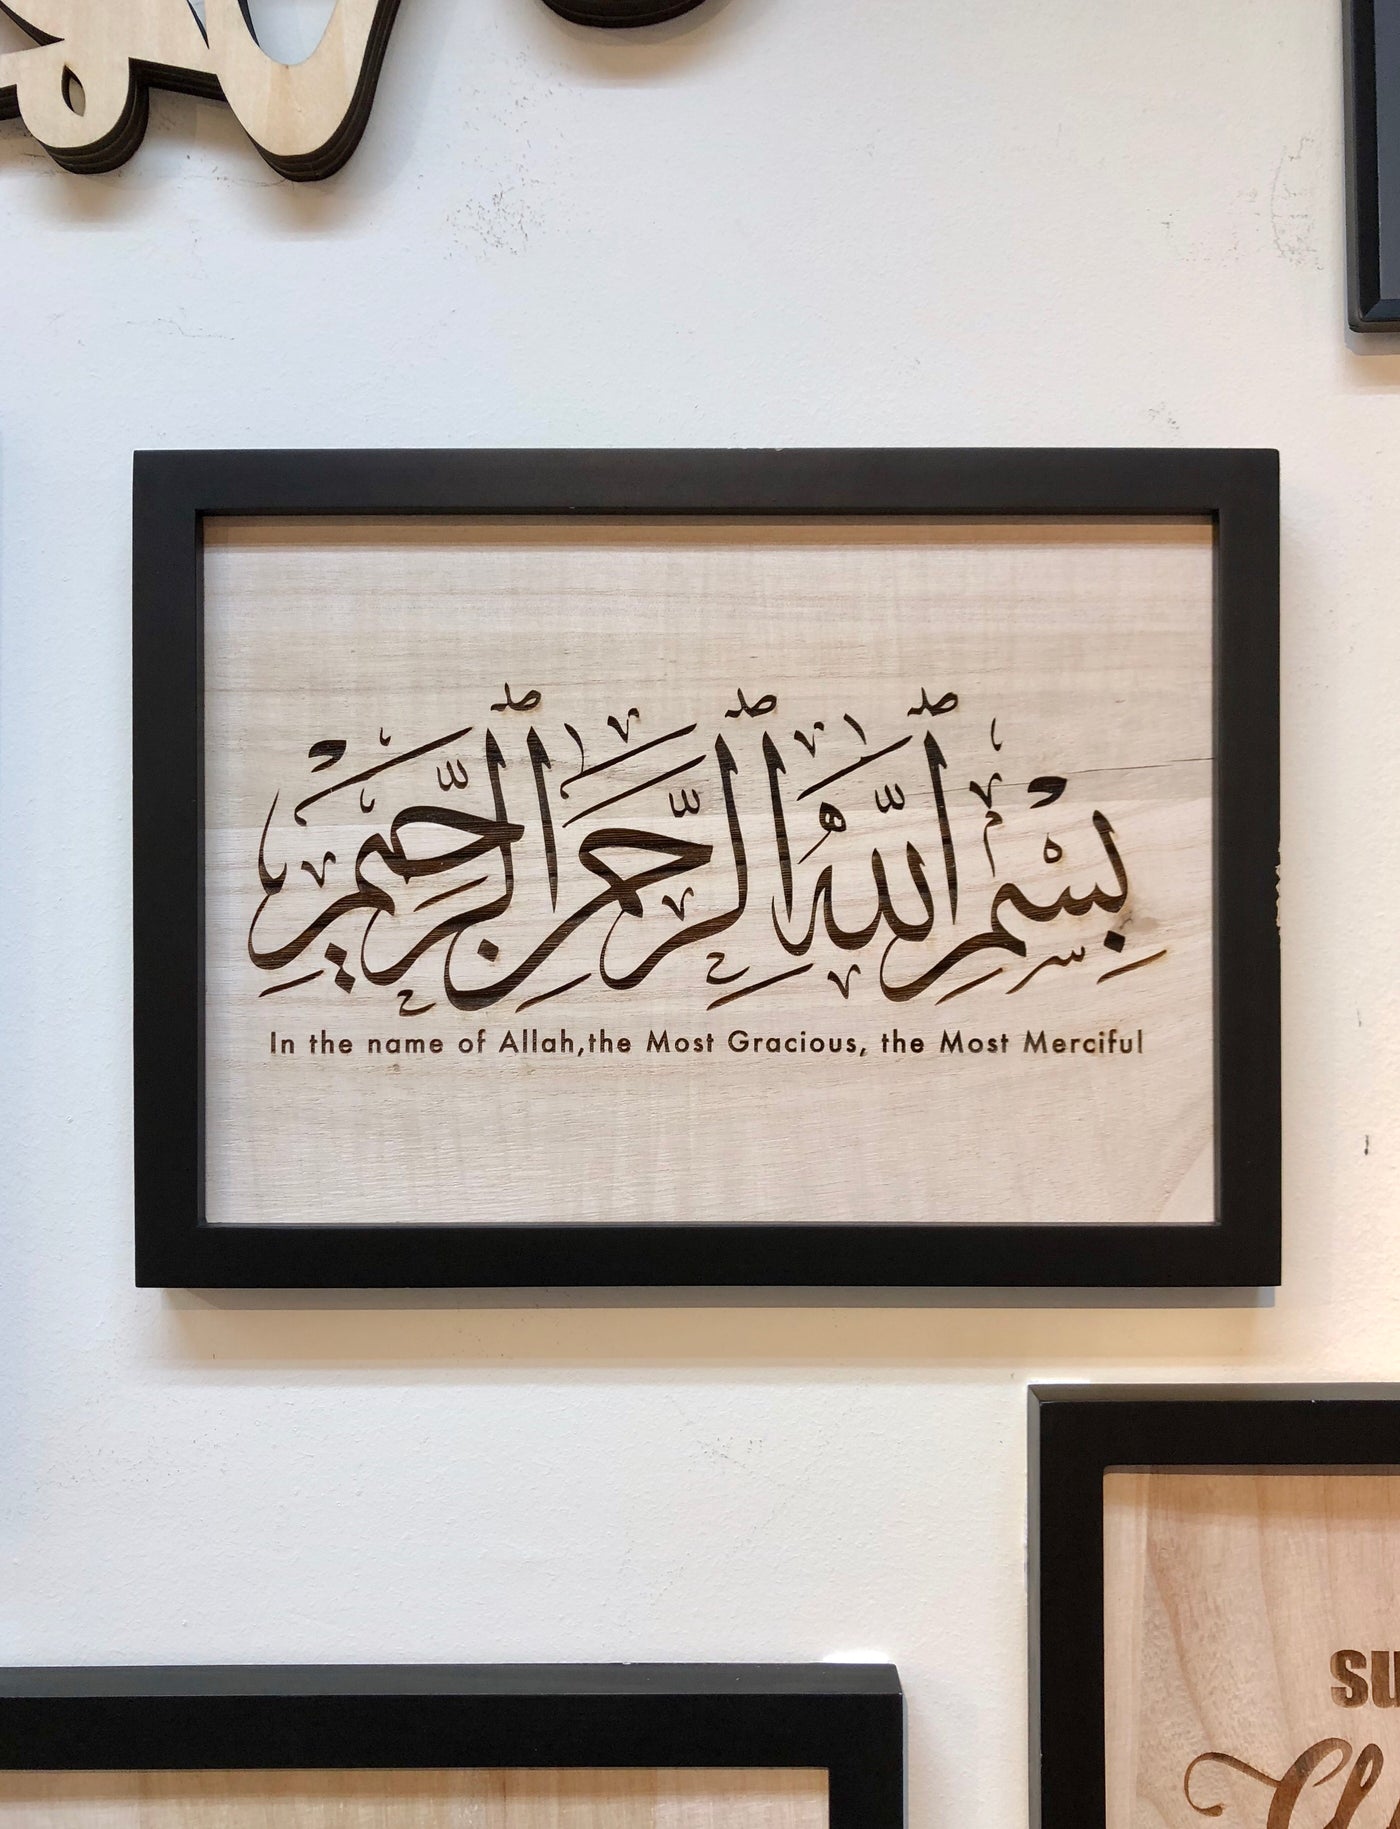 بِسْمِ ٱللَّهِ ٱلرَّحْمَٰنِ ٱلرَّحِيمِ
In the name of Allah,the Most Gracious, the Most Merciful